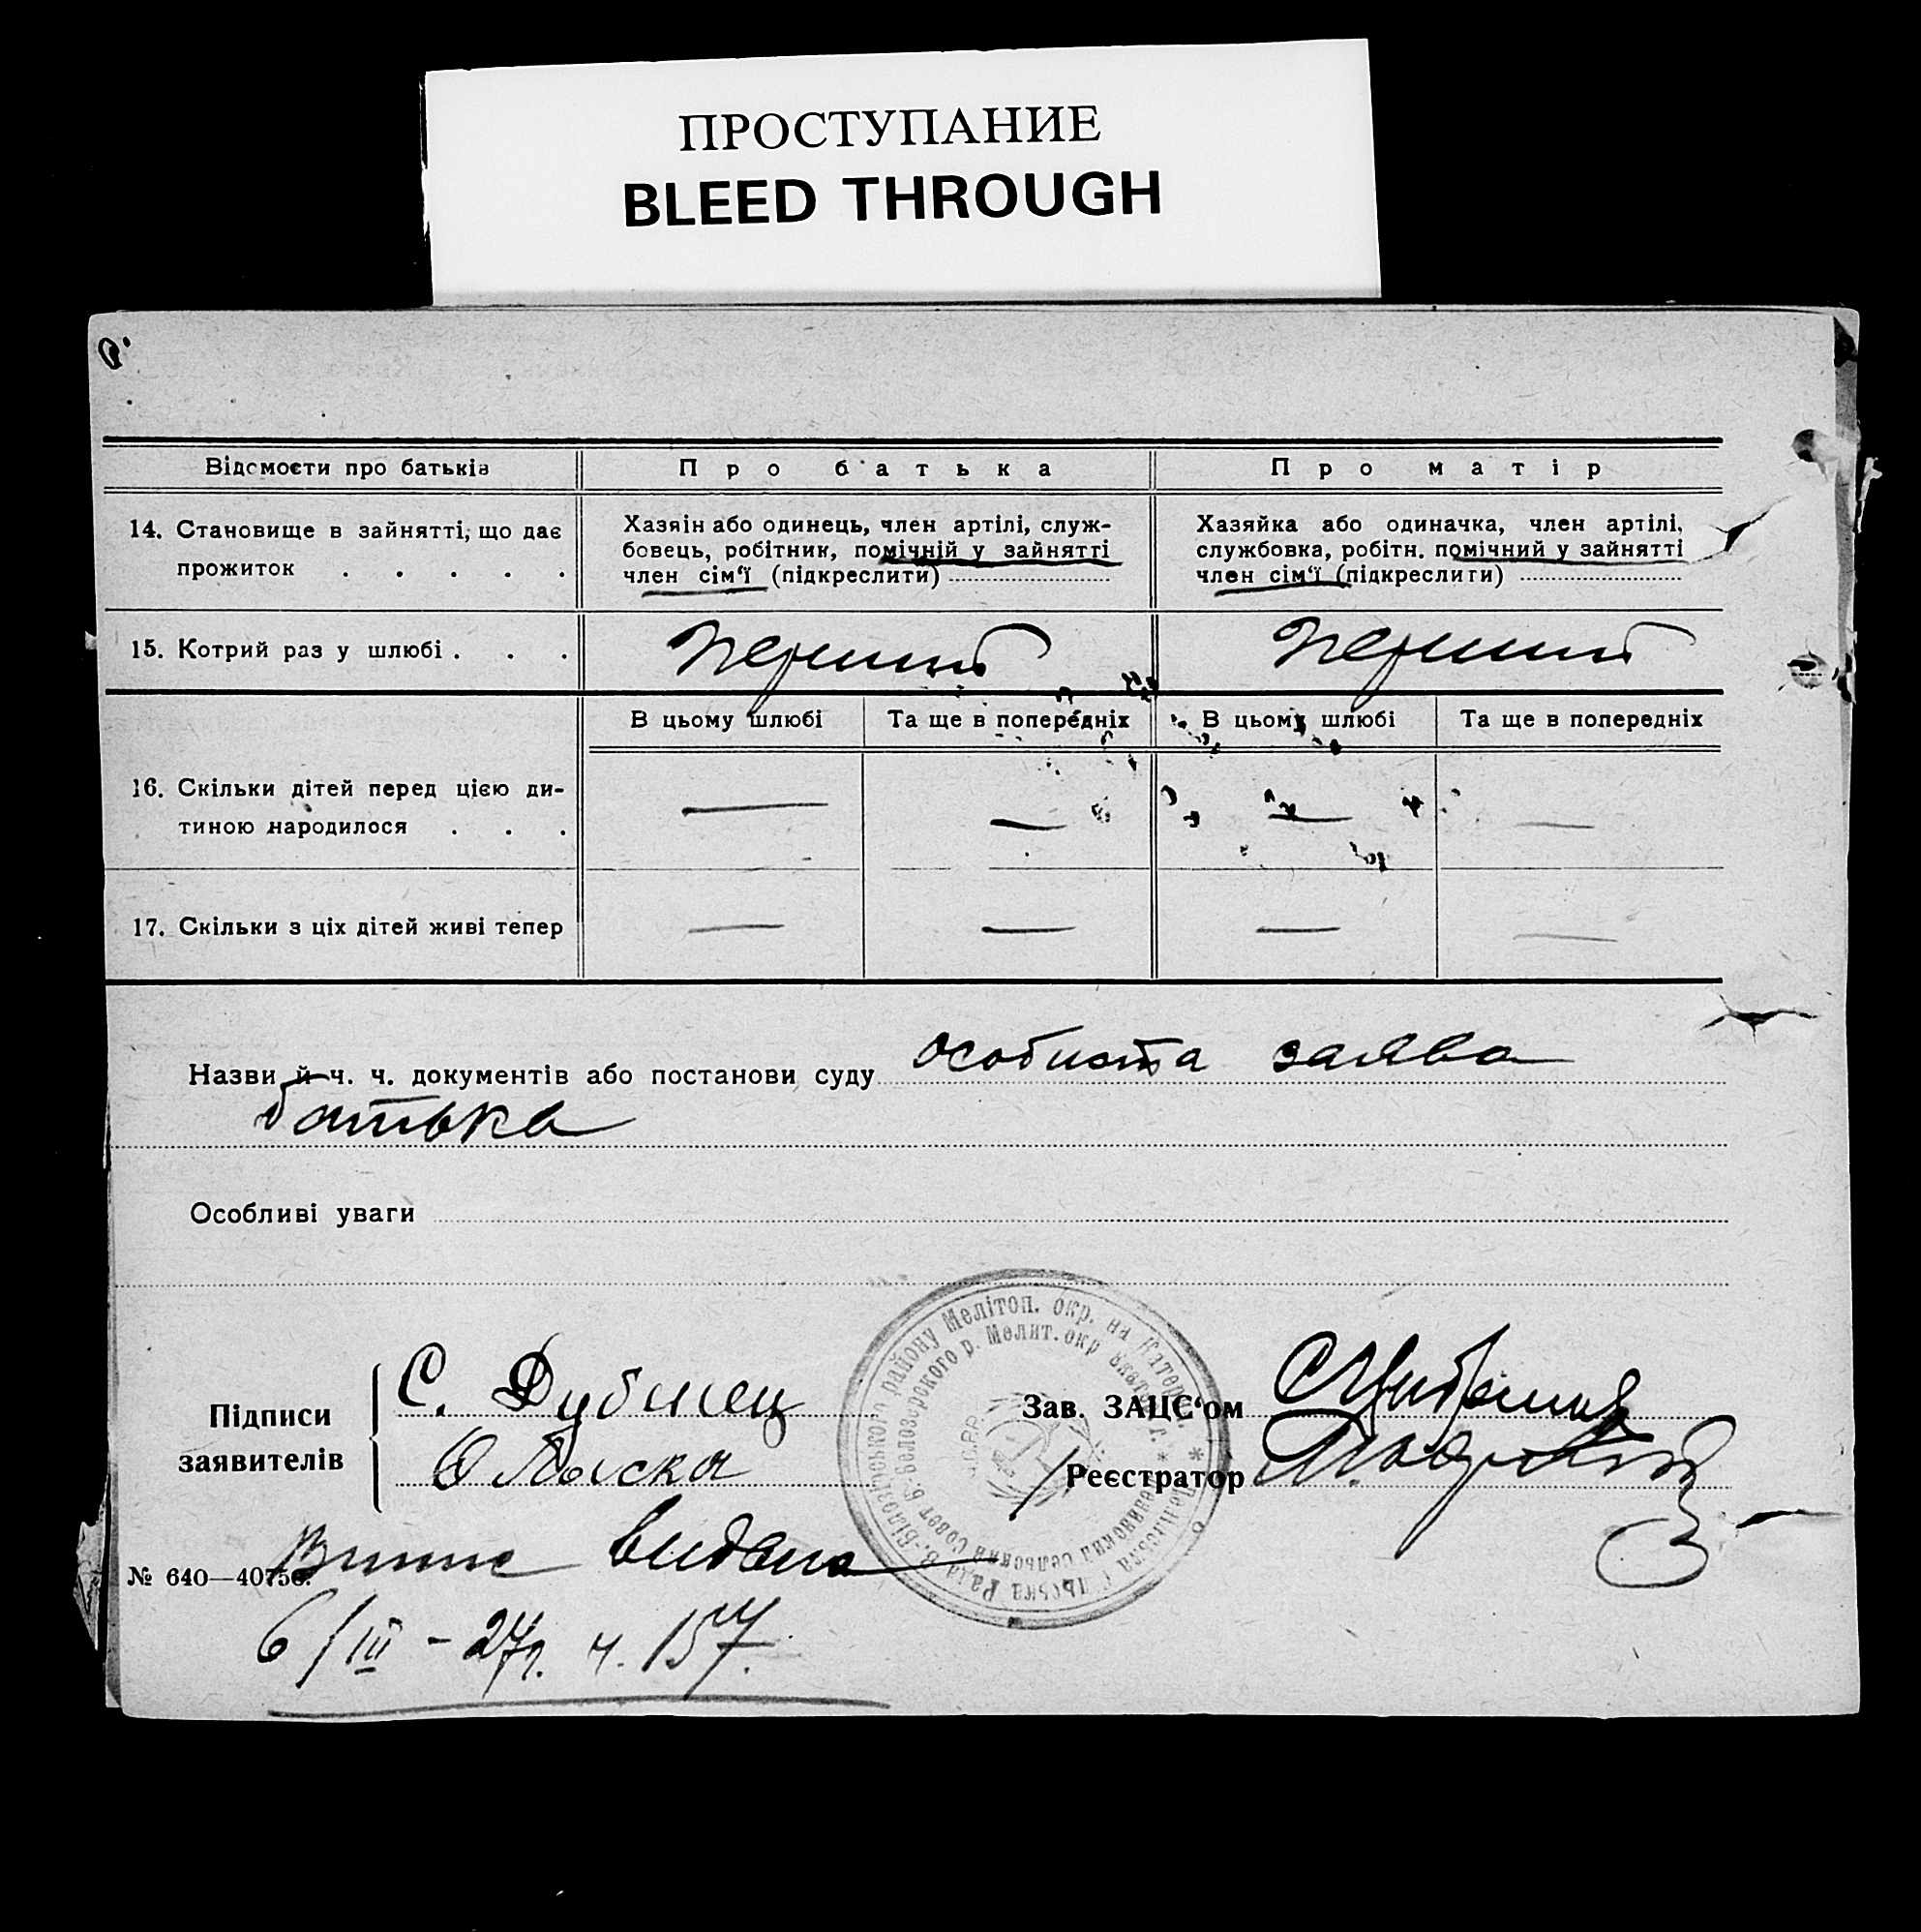 ПРОСТУПАНИЕ
BLEED THROUGH
Відомости про батьків
Про батька
Про матір
14. Становище в зайнятті, що дає
прожиток . . . . .
Хазяїн або одинець, член артілі, служ-
бовець, робітник, помічній у зайнятті
член сім‘ї (підкреслити)
Хазяйка або одиначка, член артілі,
службовка, робітн. помічний у зайнятті
член сім‘ї (підкреслити)
15. Котрий раз у шлюбі . . .
перший
перший
В цьому шлюбі
Та ще в попередніх
В цьому шлюбі
Та ще в попередніх
16. Скільки дітей перед цією ди-
тиною народилося . . .
—
—
—
—
17. Скільки з ціх дітей живі тепер
—
—
—
—
Назви й ч. ч. документів або постанови суду особиста заява
батька
Особливі уваги
Підписи
заявителів
С. Дубинец
Зав. ЗАЦС‘ом
Реєстратор
видана
№ 640—40756.
6/III – 27р. ч. 157.